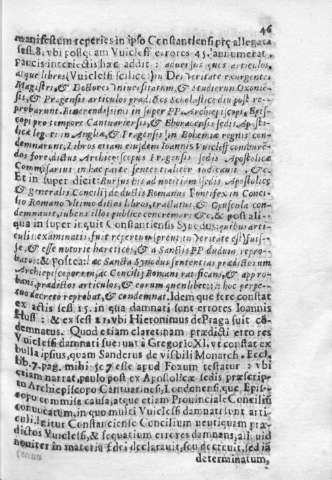 46
manifestum reperies in ipso Constantiensi pre allegata
sess. 8. vbi postquam Vuicleff errores 45. annumerat
Paucis interiectis hæc addit: aduersus quos articulos,
atque libros (Vuicleff scilicet) in De Veritate exurgente
Magistri, & Doctores Vniuersitatum, & Studiorum Oxonie-
sis, & Pragensis articulos prædictos Scholasticè diu post re-
probarunt. Reuerendissimi in super PP. Archiepiscopi, Epis-
copi pro tempore Cantuariensis, & Eboracensis sedis Aposto-
licæ legati in Angliæ, & Pragensis, in Bohemiæ regnis con-
demnarunt. Libros etiam eiusdem Ioannis Vuicleff comburē-
dos fore, dictus Archiepiscopus Pragensis sedis Apostolicæ
Commissarius in hac parte sententialiter iudicauit. &c.
Et in super dicit: Rursus hi ad notitiam sedis Apostolicæ
& generalis Concilij deductis Romanus Pontifex in Conci-
lio Romano Vltimo dictos libros, tractatus, & Opuscula con-
demnauit, iubens illos publice concremari: &c. & post ali-
qua in super inquit Constantiensis Synodus: quibus arti-
culis examinatis fuit repertum (prout in Veritate est) fuis-
se, & esse notoriè hæreticos, & a Sanctis PP. dudum repro-
batos: & Postea: ac Sancta Synodus sententias prædictorum
Archiepiscoporum, ac Concilij Romani ratificans, & appro-
bans, prædictos articulos, & eorum quemlibet: hoc perpe-
tuo decreto reprobat, & condemnat. Idem quæ ferè constat
ex actis sess. 15. in qua damnati sunt errores Ioannis
Huss: & ex sess 21. vbi Hieronimus de Praga fuit cō-
demnatus. Quod etiam clarè tam prædicti errores
Vuicleff damnati fuerunt à Gregorio XI. vt constat ex
bulla ipsius, quam Sanderus de visibili Monarch. Eccl.
lib. 7. pag. mihi 507 esse apud Foxum testatur: vbi
etiam narrat, paulo post ex Apostolicæ sedis præscrip-
to Archiepiscopo Cantuariensi, Londonensique Epis-
copo commissa causa, atque etiam Prouinciale Concilium
conuocatum, in quo multi Vuicleff damnati sunt arti-
culi. Igitur Constanciense Concilium neutiquam præ-
dictos Vuicleff, & sequatium errores damnans, aliquid
nouiter in materia fidei declarauit, seu decreuit, sed iā
determinatum,